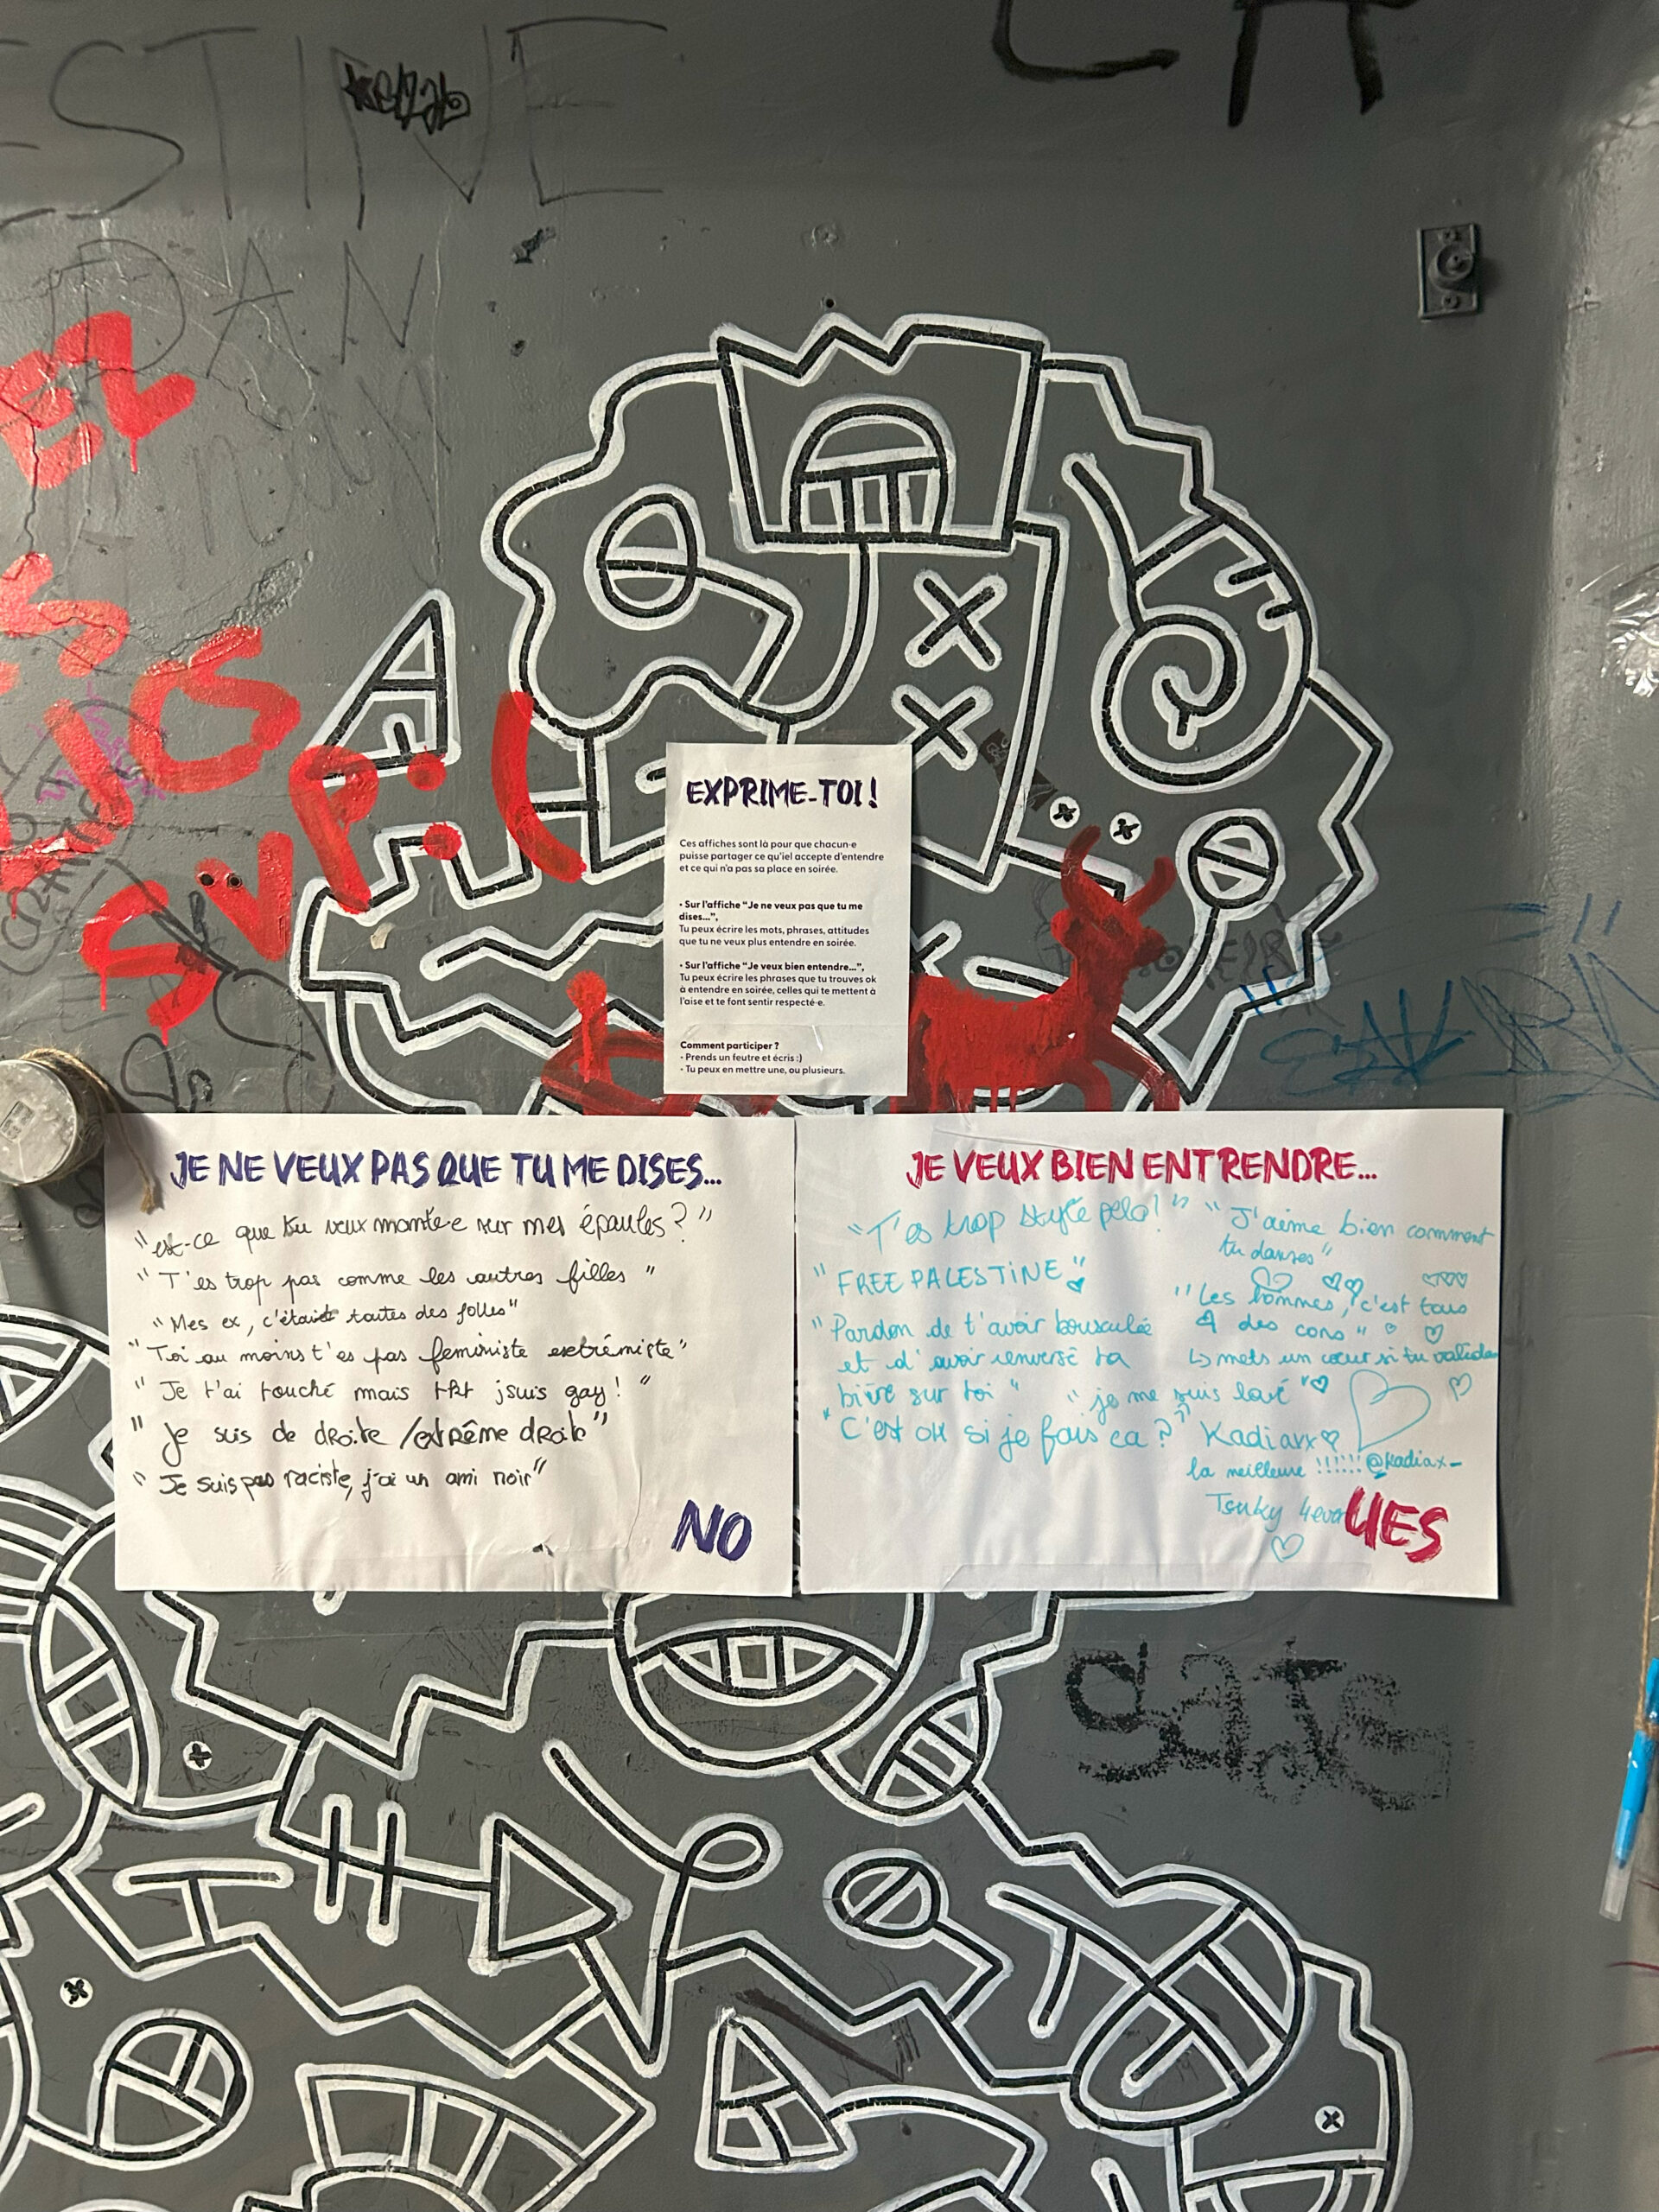 ESTINE
DAN
SVP:(
EXPRIME-TOI !
Ces affiches sont là pour que chacun·e
puisse partager ce qu'iel accepte d'entendre
et ce qui n'a pas sa place en soirée.
• Sur l'affiche "Je ne veux pas que tu me
dises...",
Tu peux écrire les mots, phrases, attitudes
que tu ne veux plus entendre en soirée.
• Sur l'affiche "Je veux bien entendre...",
Tu peux écrire les phrases que tu trouves ok
à entendre en soirée, celles qui te mettent à
l'aise et te font sentir respecté·e.
Comment participer ?
- Prends un feutre et écris :)
- Tu peux en mettre une, ou plusieurs.
JE NE VEUX PAS QUE TU ME DISES...
"est-ce que tu veux monter sur mes épaules ? "
" T'es trop pas comme les autres filles "
"Mes ex, c'était toutes des folles"
"Toi au moins t'es pas féministe extrémiste"
" Je t'ai touché mais tkt jsuis gay ! "
" Je suis de droite / extrême droite"
" Je suis pas raciste, j'ai un ami noir"
NO
JE VEUX BIEN ENTRENDRE...
"T'es trop stylé pelo ! "
" FREE PALESTINE "
"Pardon de t'avoir bousculée
et d'avoir renversé ta
bière sur toi "
"je me suis lavé"
"C'est OK si je fais ca ? "
"J'aime bien comment
tu danses"
"Les hommes, c'est tous
des cons"
↳ mets un cœur si tu valides
Kadiaxx
la meilleure !!!!!! @kadiax_
Tsuky 4ever
YES
SaTe